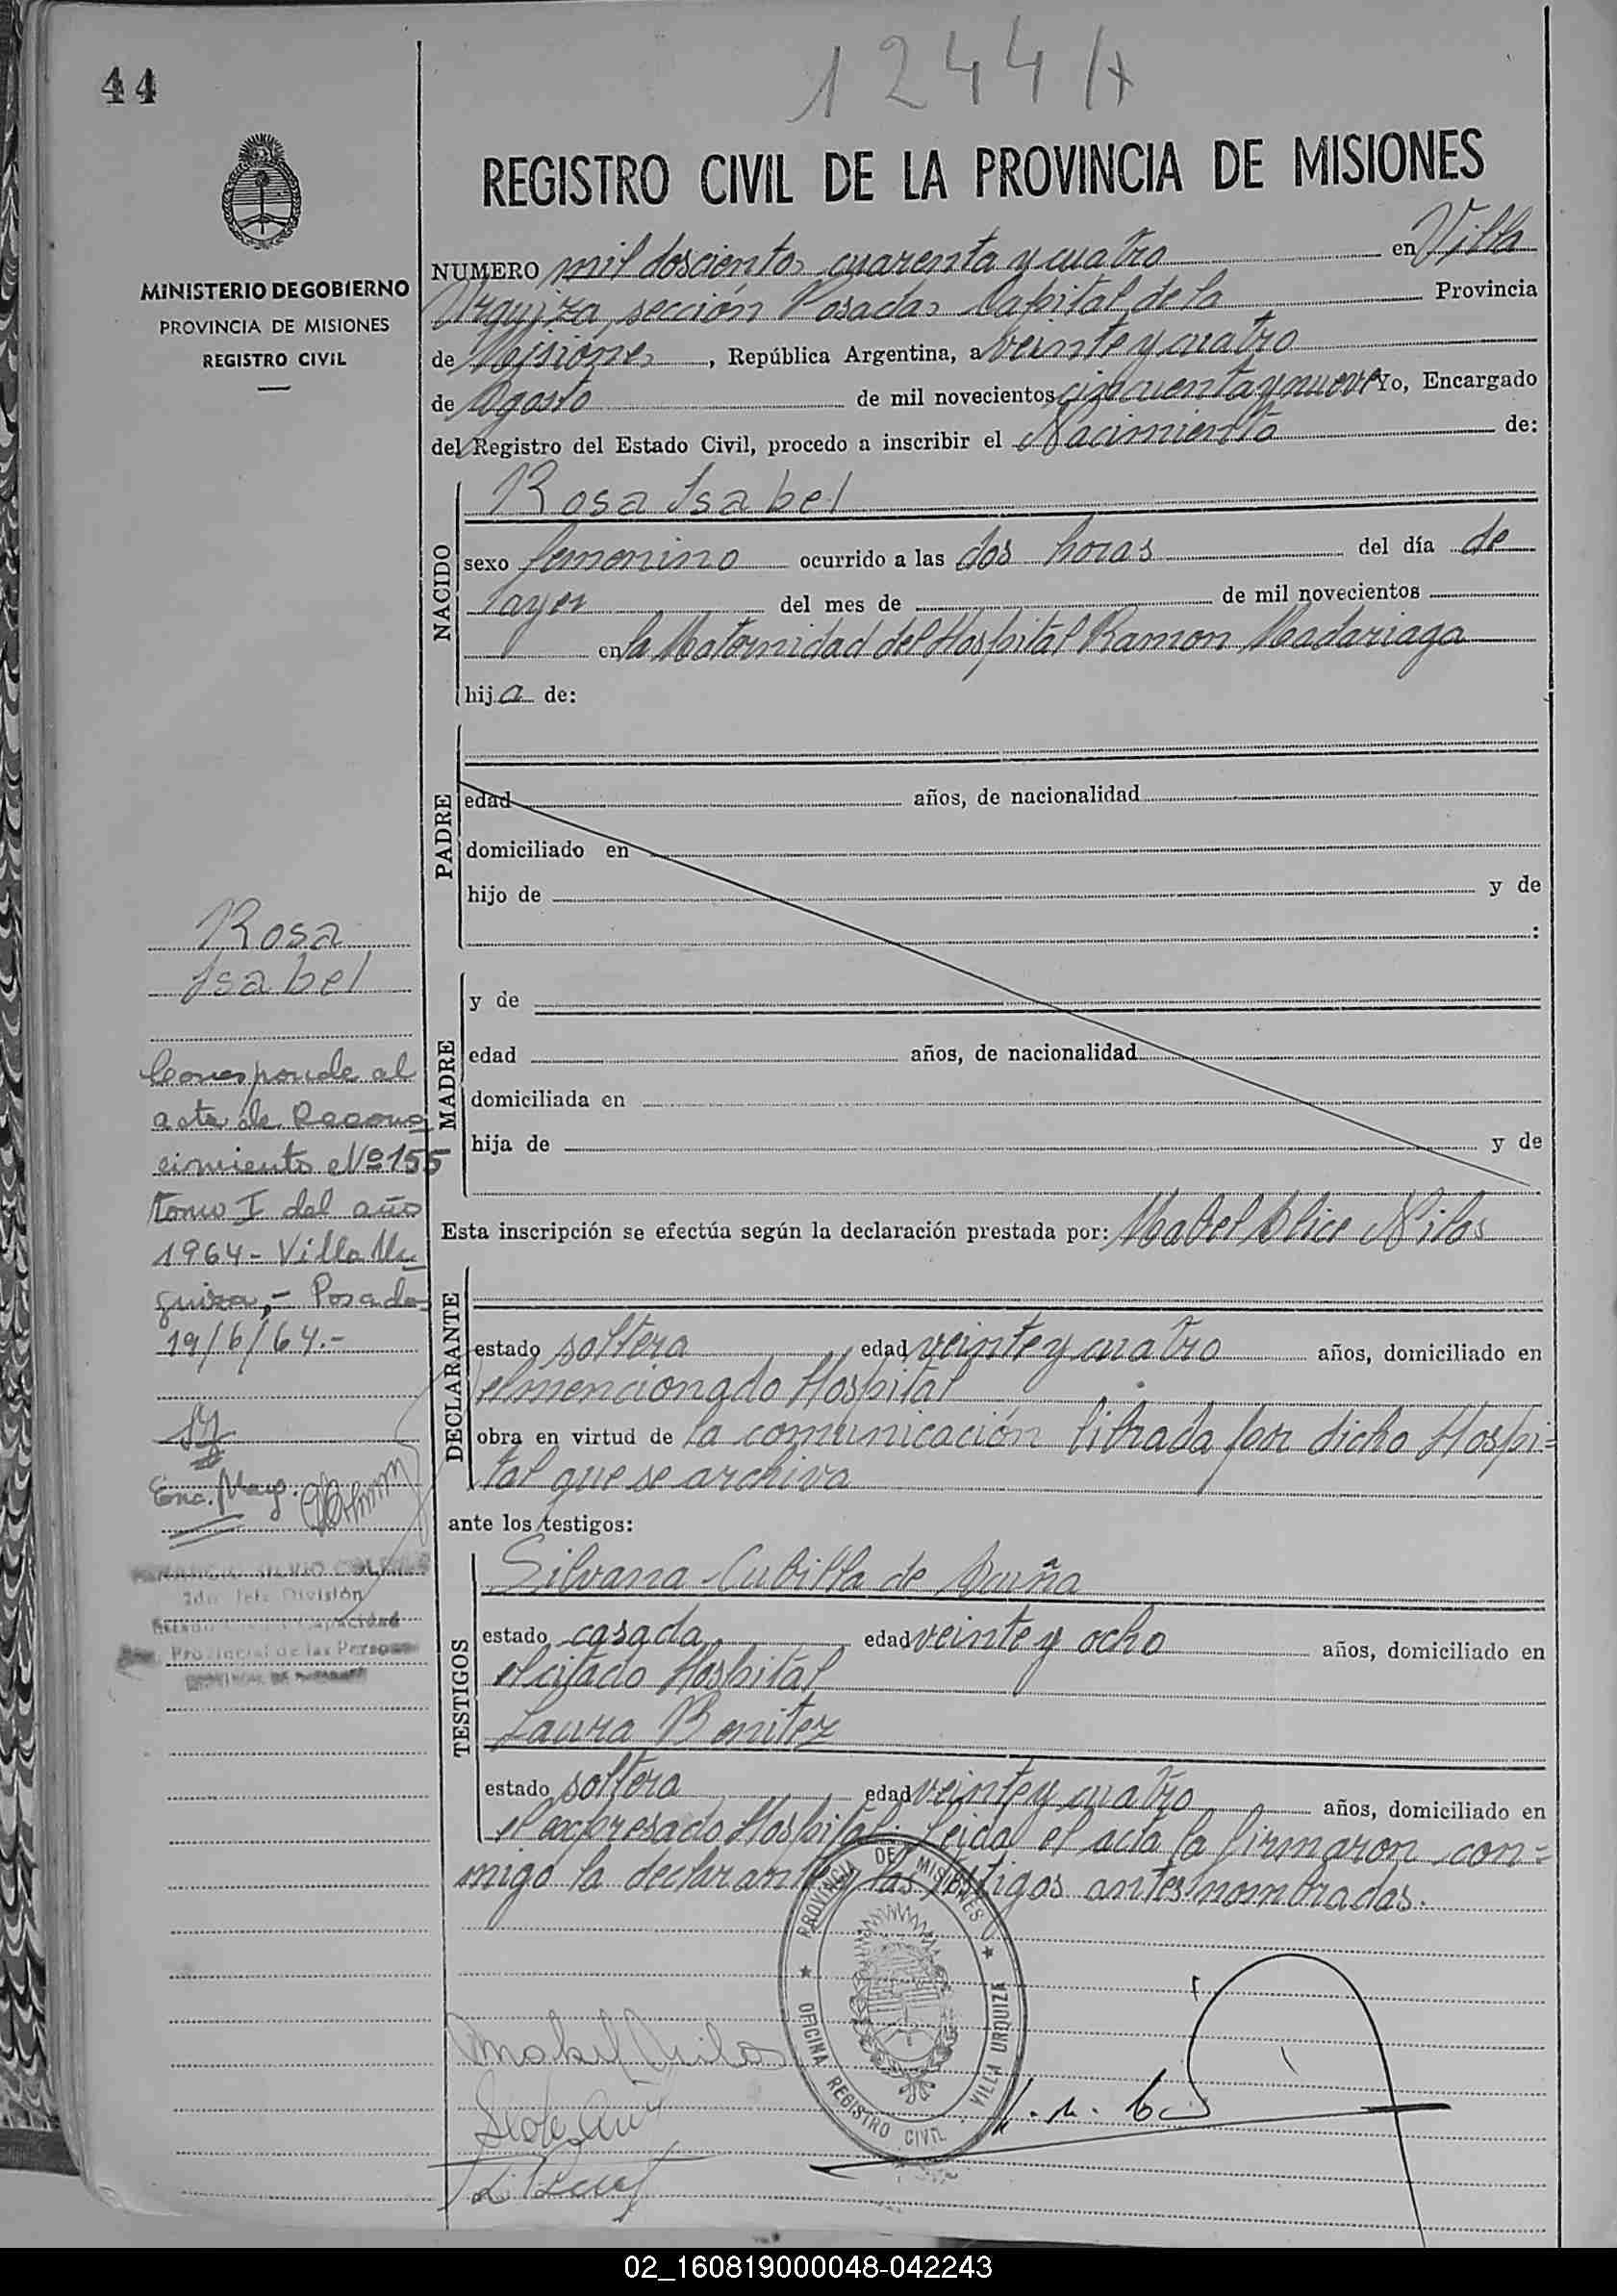 44
1244 H
REGISTRO CIVIL DE LA PROVINCIA DE MISIONES
MINISTERIO DE GOBIERNO
PROVINCIA DE MISIONES
REGISTRO CIVIL
NUMERO mil doscientos cuarenta y cuatro en Villa
Urquiza, sección Posadas Capital de la Provincia
de Misiones, República Argentina, a veinte y cuatro
de Agosto de mil novecientos cincuenta y nueve Yo, Encargado
del Registro del Estado Civil, procedo a inscribir el Nacimiento de:
NACIDO
Rosa Isabel
sexo femenino ocurrido a las dos horas del día de
ayer del mes de de mil novecientos
en la Maternidad del Hospital Ramon Madariaga
hija de:
PADRE
edad años, de nacionalidad
domiciliado en
hijo de y de
:
MADRE
y de
edad años, de nacionalidad
domiciliada en
hija de y de
Rosa
Isabel
Corresponde al
acta de Recono
cimiento Nº 155
tomo I del año
1964 - Villa Ur
quiza, - Posadas
19/6/64.-
Enc. Mesa
2do. Jefe División
Provincial de las Personas
Esta inscripción se efectúa según la declaración prestada por: Mabel Alice Nilos
DECLARANTE
estado soltera edad veinte y cuatro años, domiciliado en
el mencionado Hospital
obra en virtud de la comunicación librada por dicho Hospi=
tal que se archiva
ante los testigos:
TESTIGOS
Silvana Cubilla de Acuña
estado casada edad veinte y ocho años, domiciliado en
el citado Hospital
Laura Benitez
estado soltera edad veinte y cuatro años, domiciliado en
el expresado Hospital. Leida el acta la firmaron con=
migo la declarante y las testigos antes nombradas.
PROVINCIA DE MISIONES
OFICINA REGISTRO CIVIL VILLA URQUIZA
Mabel Nilos
02_160819000048-042243